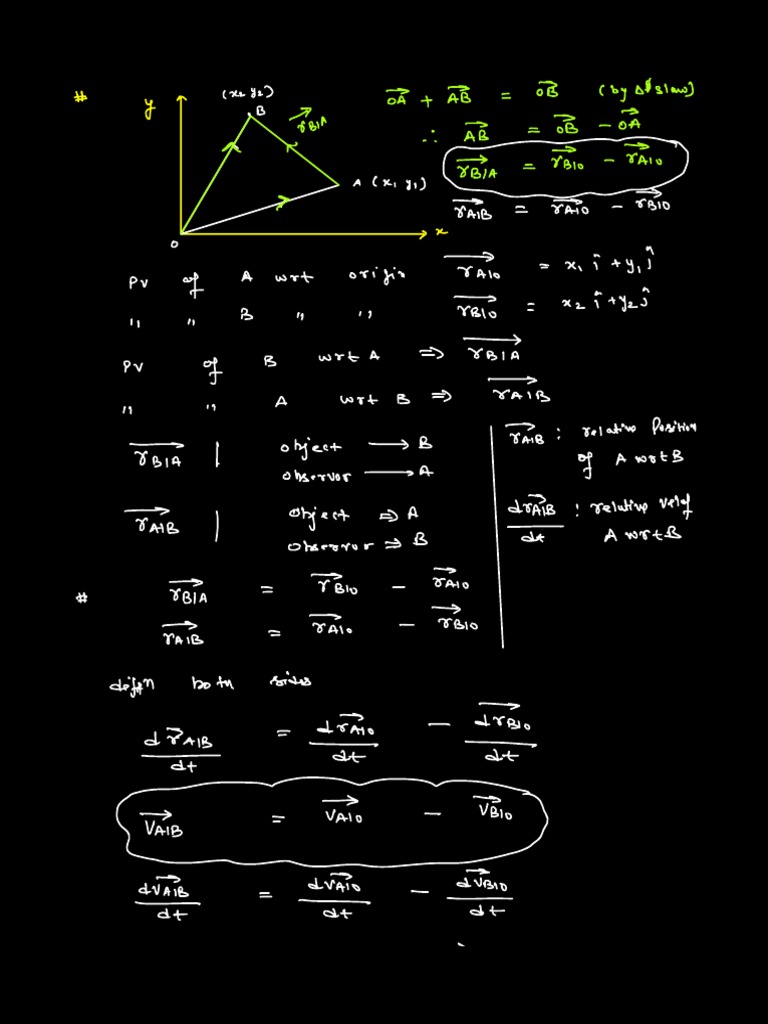 #
y
(x2 y2)
B
r⃗B|A
A (x1 y1)
x
O
OA⃗ + AB⃗ = OB⃗ (by Δ's law)
∴ AB⃗ = OB⃗ - OA⃗
r⃗B|A = r⃗B|O - r⃗A|O
r⃗A|B = r⃗A|O - r⃗B|O
PV of A wrt origin r⃗A|O = x1 î + y1 ĵ
,, ,, B ,, ,, r⃗B|O = x2 î + y2 ĵ
PV of B wrt A ⇒ r⃗B|A
,, ,, A wrt B ⇒ r⃗A|B
r⃗B|A | object → B
observor → A
r⃗A|B | object ⇒ A
observor ⇒ B
r⃗A|B : relative Position
of A wrt B
dr⃗A|B/dt : relative vel of
A wrt B
# r⃗B|A = r⃗B|O - r⃗A|O
r⃗A|B = r⃗A|O - r⃗B|O
diffn both sides
dr⃗A|B/dt = dr⃗A|O/dt - dr⃗B|O/dt
V⃗A|B = V⃗A|O - V⃗B|O
dv⃗A|B/dt = dv⃗A|O/dt - dv⃗B|O/dt